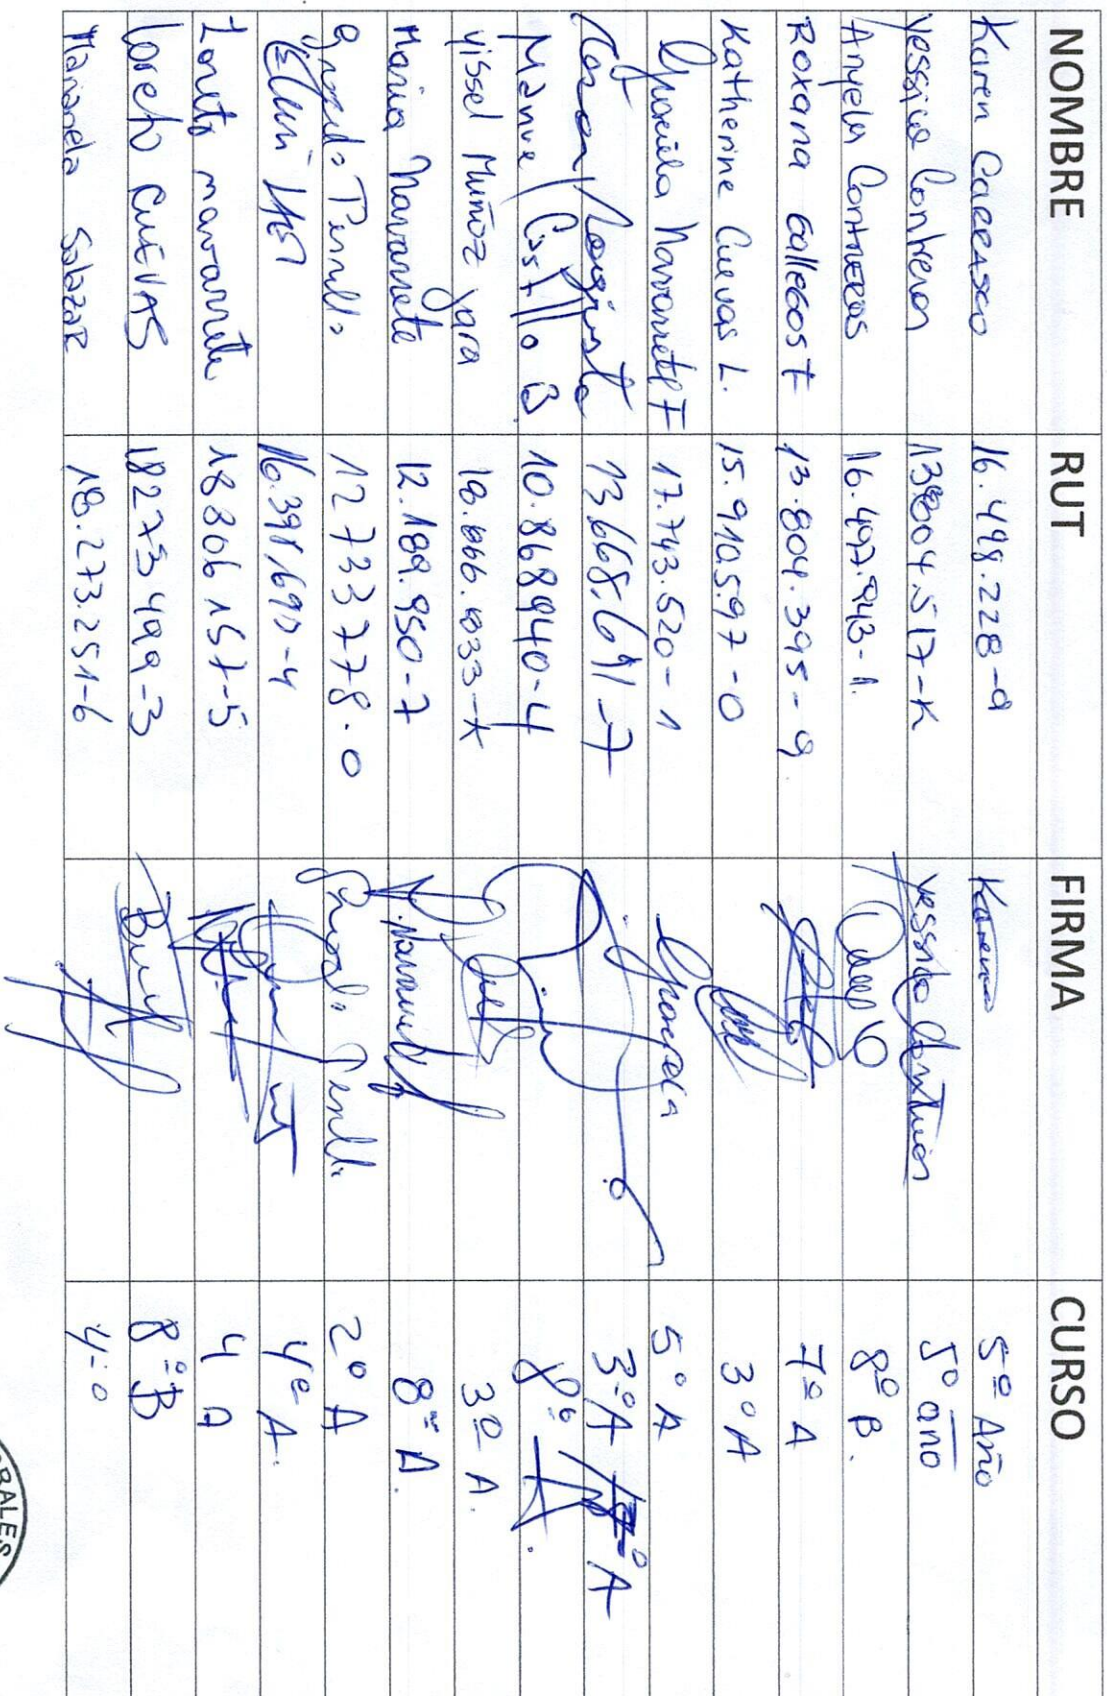 NOMBRE RUT FIRMA CURSO
Karen Carrasco 16.498.228-9 Karen 5º Año
Yessica Contreras 13.804.517-K Yessica Contreras 5º año
Angela Contreras 16.497.943-1. 8º B.
Roxana Gallegos F 13.804.395-9 7º A
Katherine Cuevas L. 15.910.597-0 3º A
Navarrete F 17.743.520-1 5º A
13.668.691-7 3ºA
Manuel Castillo B 10.868940-4 8º A.
Yissel Muñoz Jara 3º A.
Maria Navarrete 12.189.950-7 Navarrete 8º A.
12733778-0 2º A
4º A.
Loreto navarrete 18806157-5 4 A
Loreto CUEVAS 18273499-3 8º B
Marianela Salazar 18.273.251-6 4º
RALES